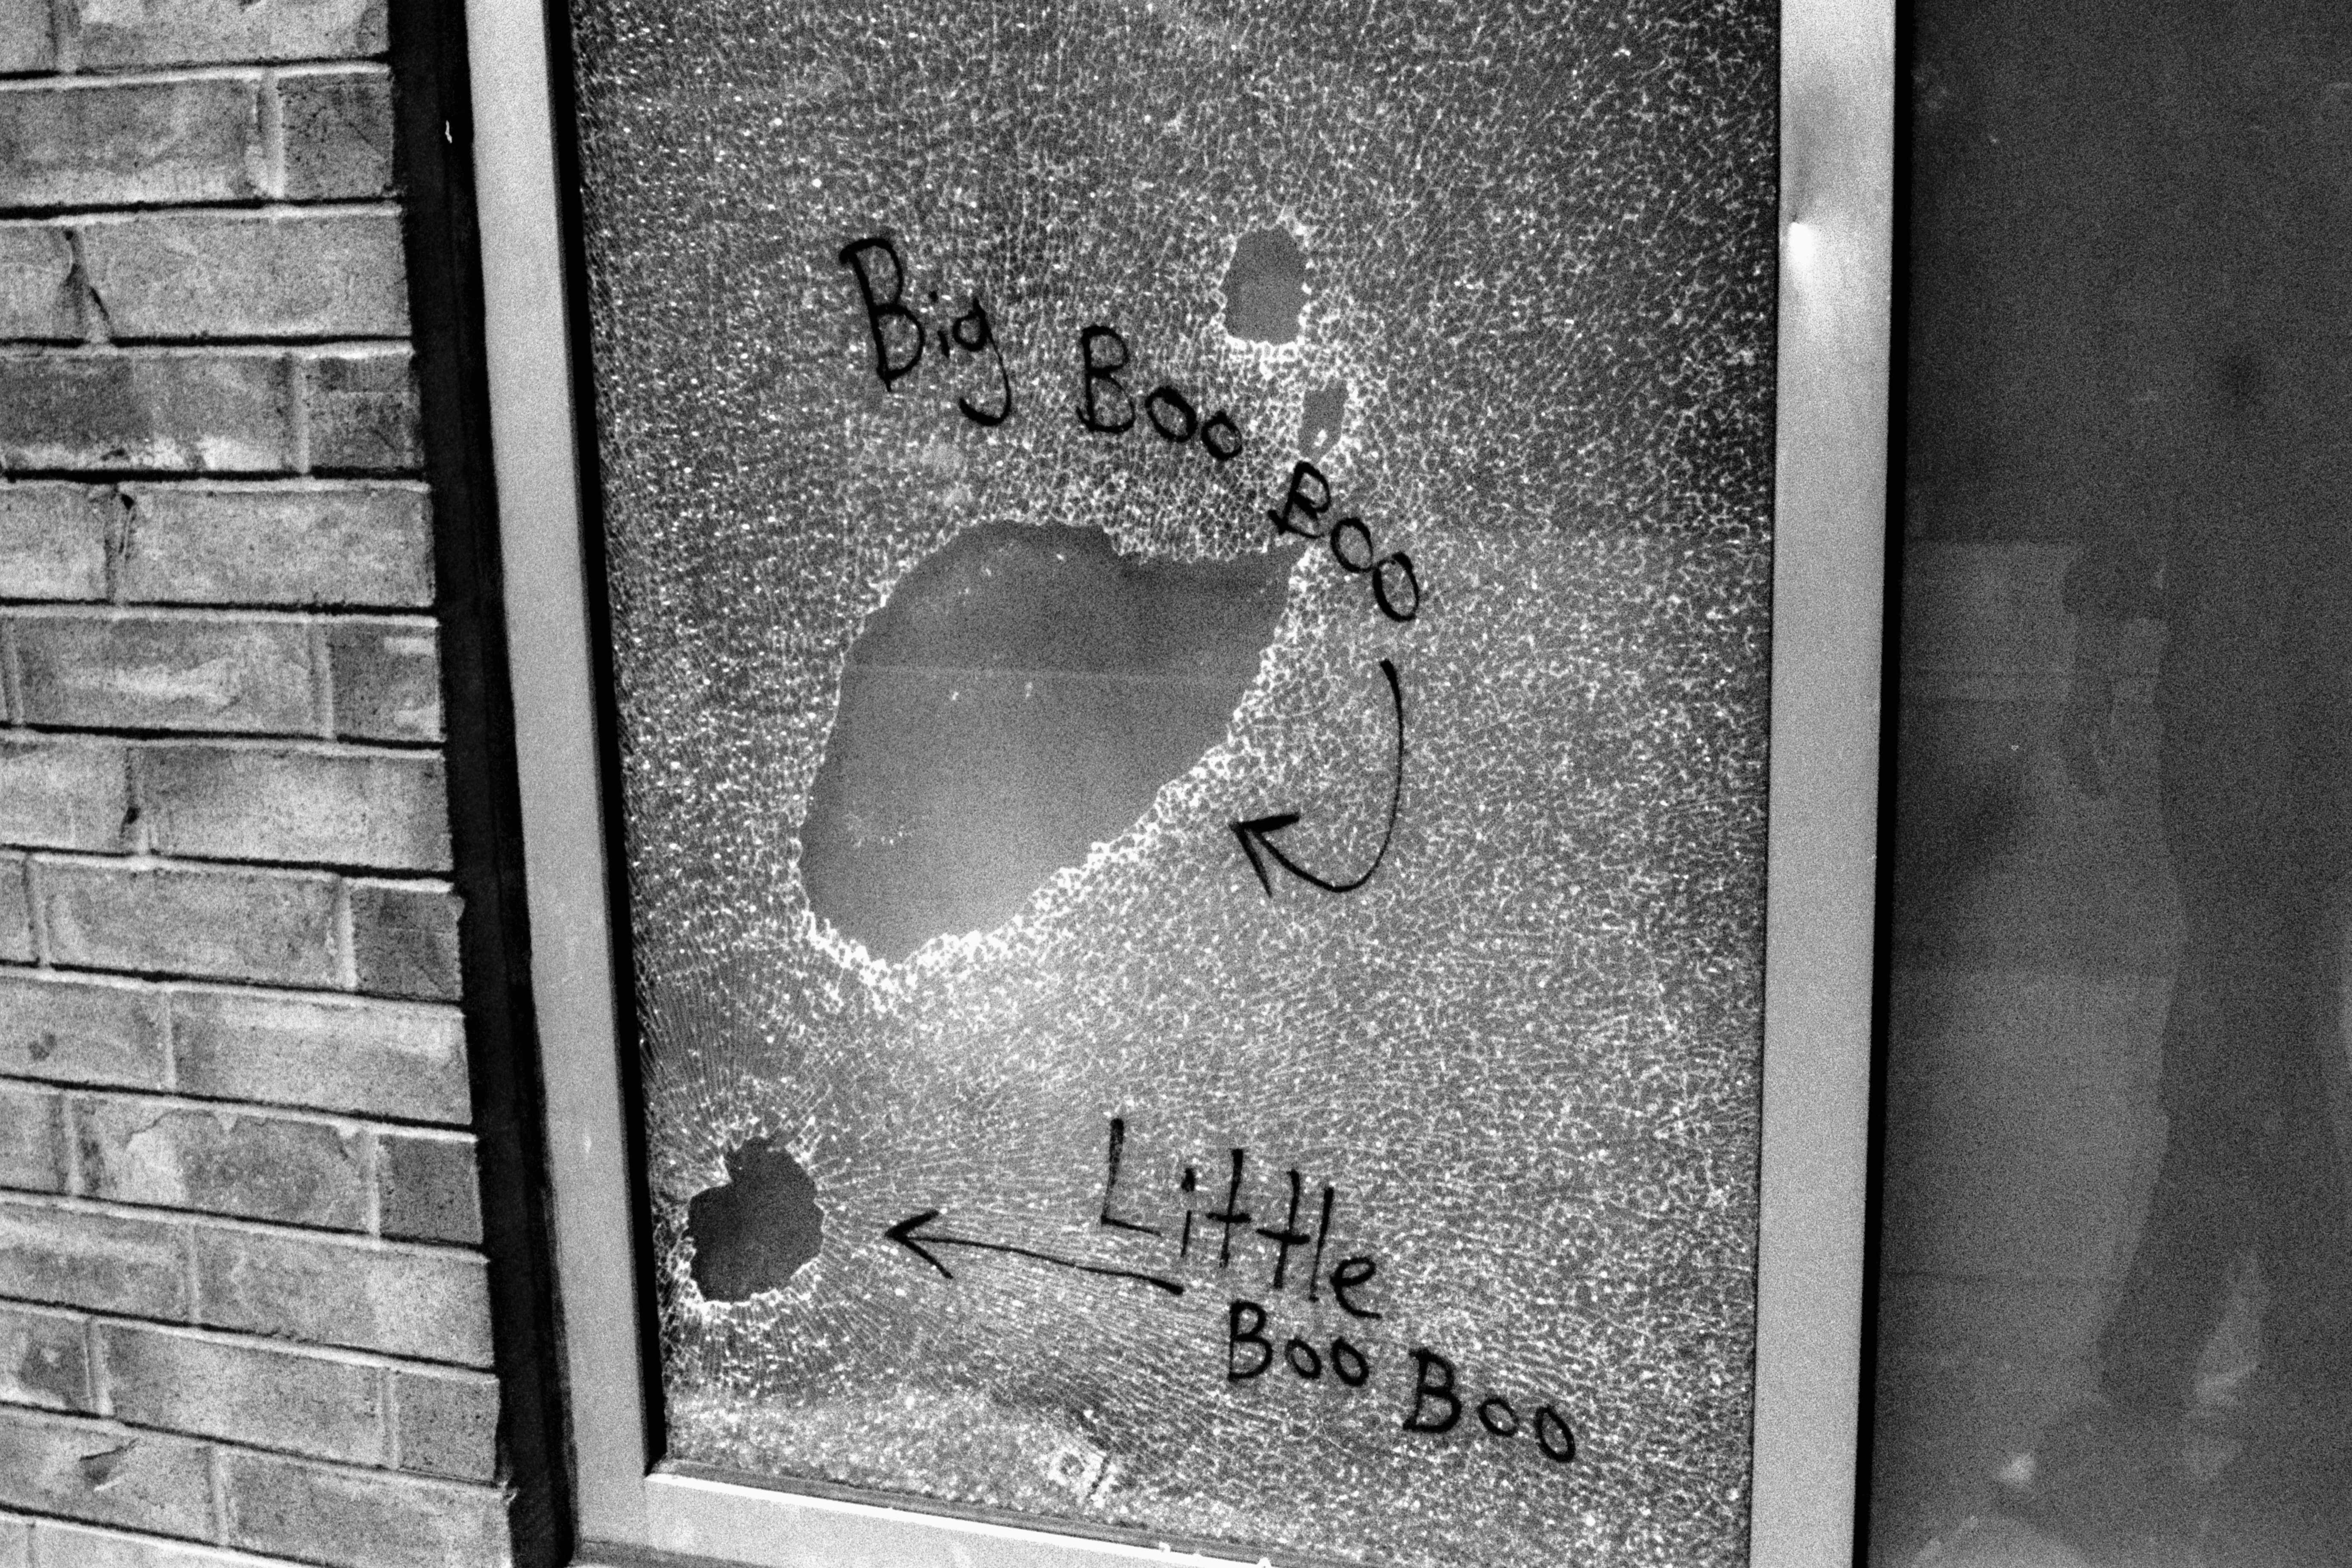 Big Boo Boo
Little
Boo Boo